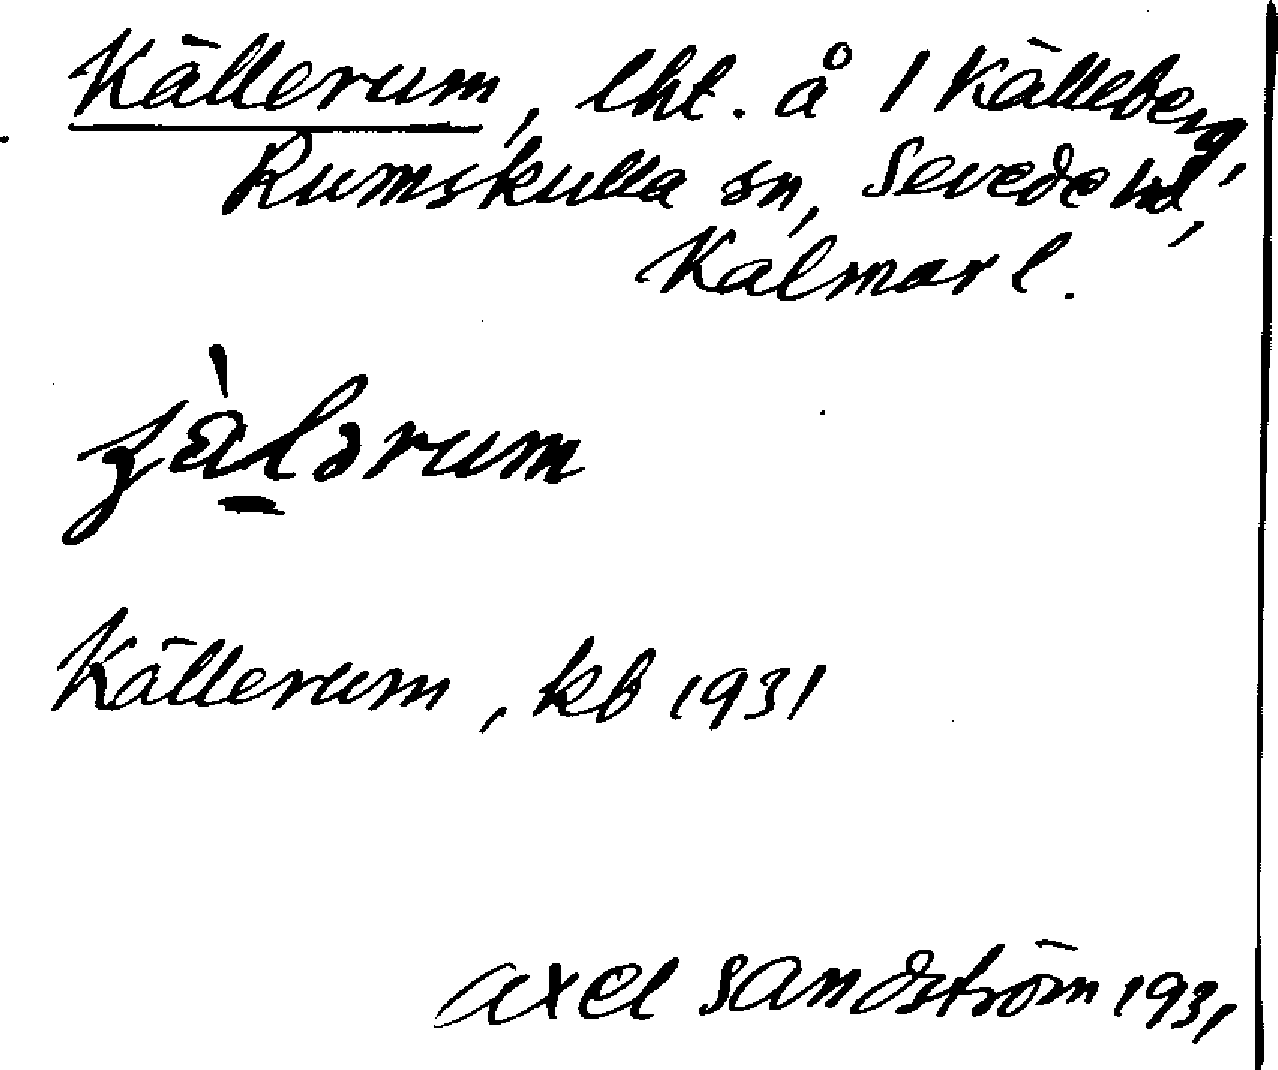 Källerum, lht. å 1 Källeberg,
Rumskulla sn, Sevede hd,
Kalmar l.
Källerum, kb 1931
Axel Sandström 1931